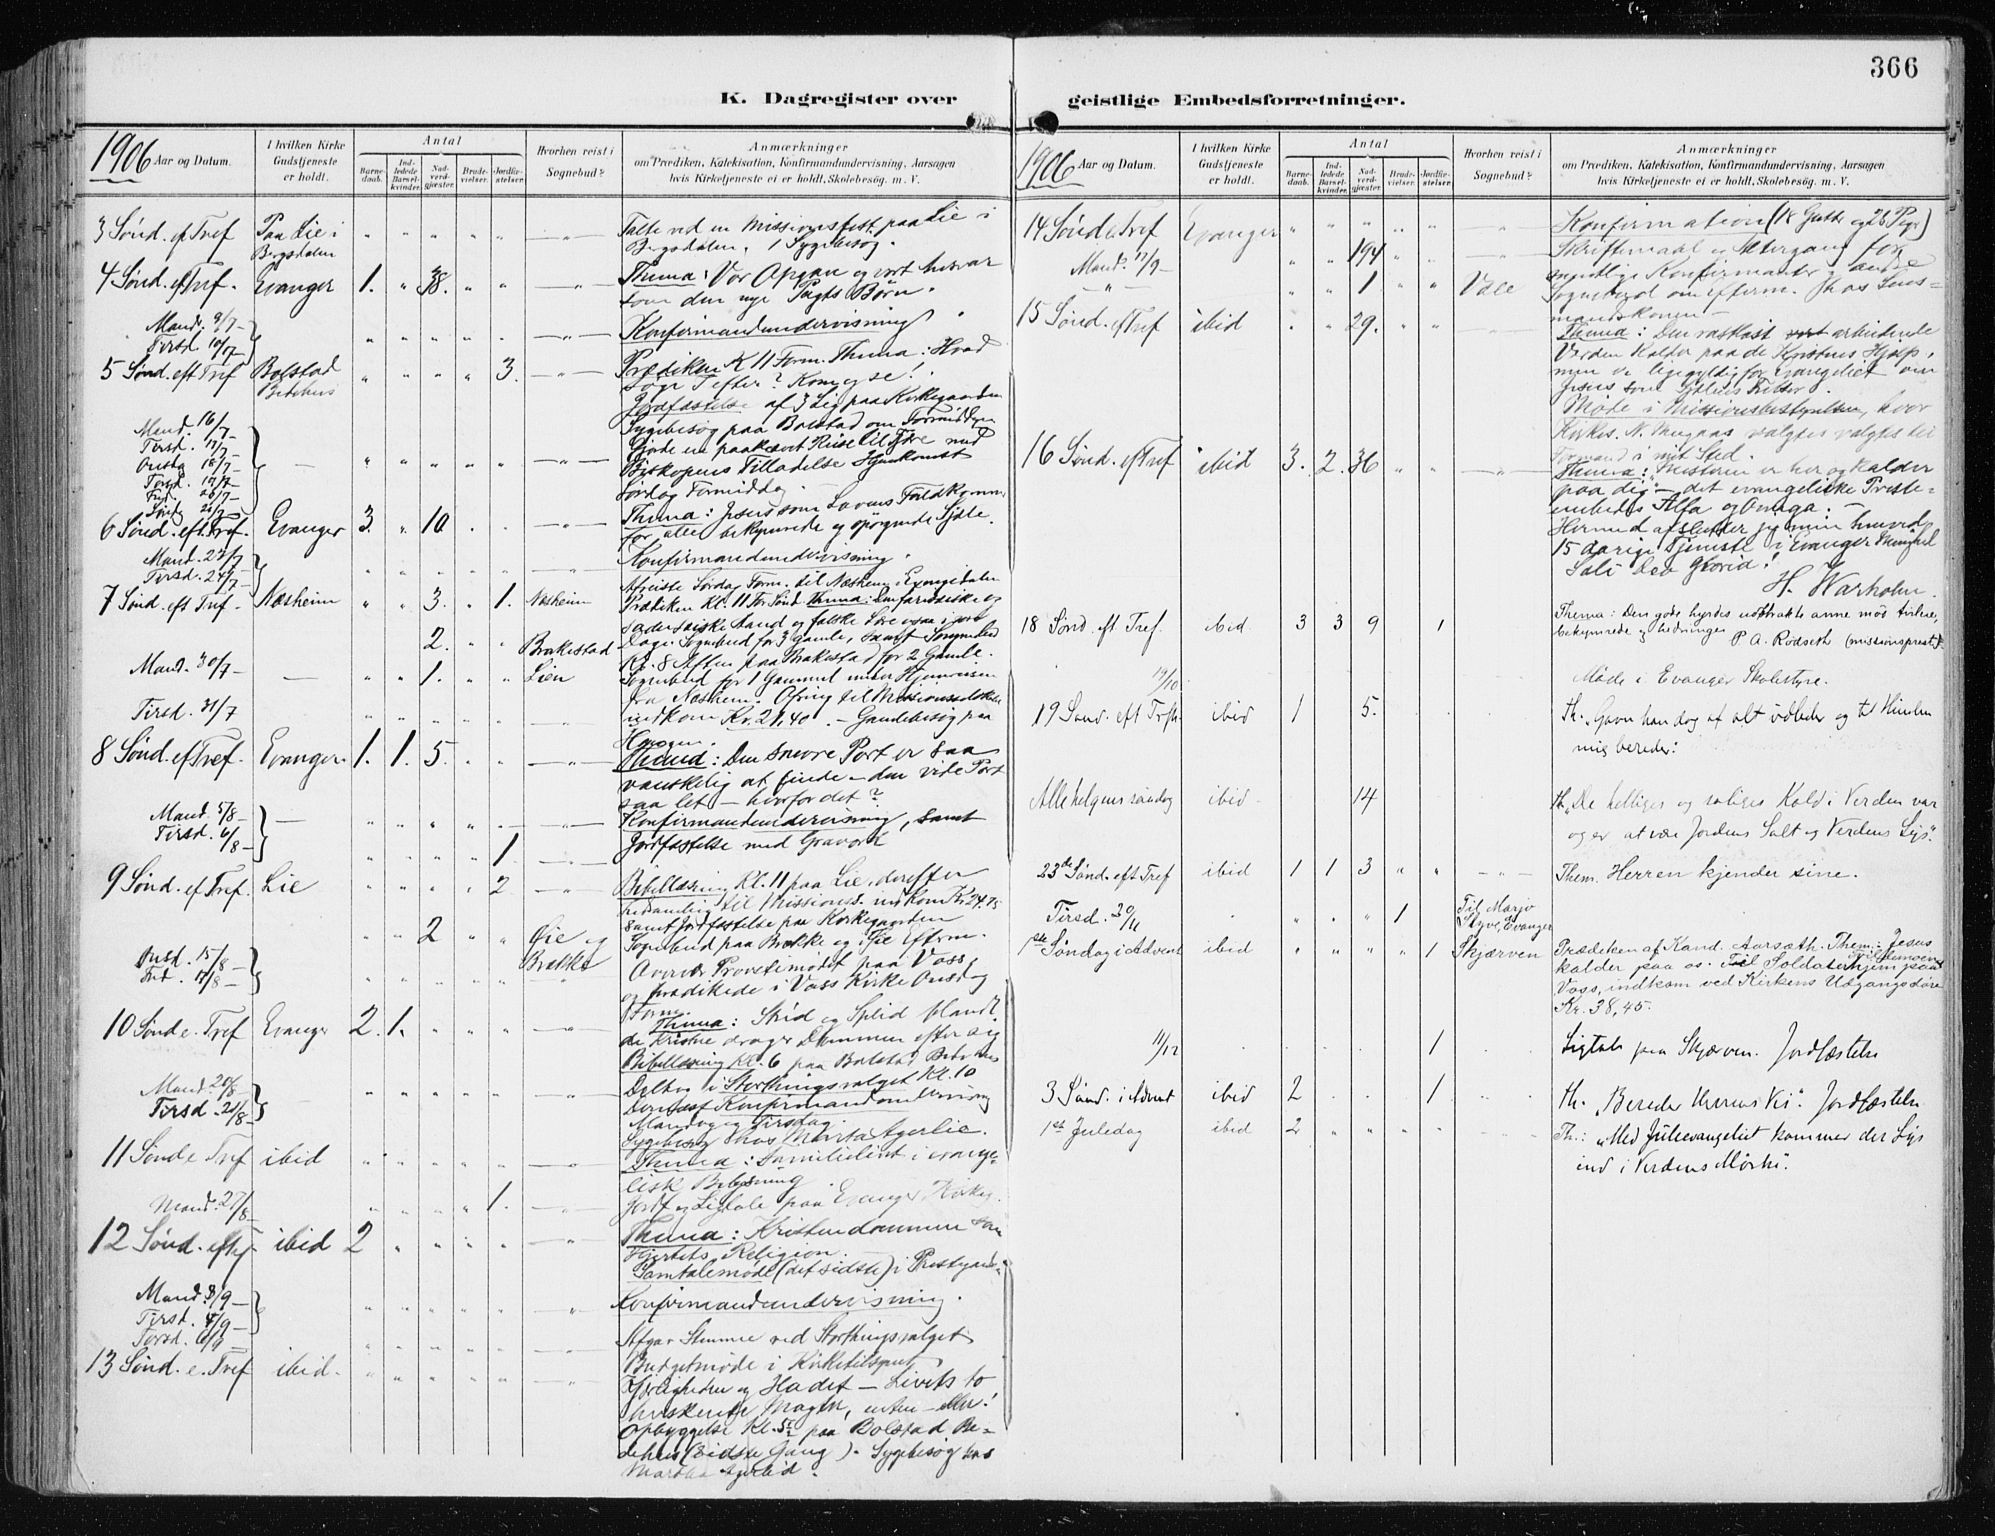 366
K. Dagregister over geistlige Embedsforretninger.
1906 Aar og Datum.
I hvilken Kirke Gudstjeneste er holdt.
Antal
Barnedaab.
Indledede Barselkvinder.
Nadverdgjæster.
Brudevielser.
Jordfæstelser.
Hvorhen reist i Sognebud?
Anmærkninger
om Prædiken, Katekisation, Konfirmandundervisning, Aarsagen
hvis Kirketjeneste ei er holdt, Skolebesøg. m. V.
3 Sønd. ef Tref Paa Lie i Bergsdalen " " " " " — " — Talte ved en Missionsfest paa Lie i
Bergsdalen. 1 Sygebesøg.
4 Sønd. ef Tref. Evanger 1. " 38. " " — " — Thema: Vor Opgav og vort Ansvar
som den nye Pagts Børn.
Mand. 9/7 —
Tirsd. 10/7 } " " " " " — " — Konfirmandundervisning
5 Sønd. eft Tref Bolstad Bedehus " " " " 3. — " — Prædiken K 11 Form. Thema: Hvad
søge I efter? Kom og se!
Jordfæstelse af 3 Lig paa Kirkegaarden
Sygebesøg paa Bolstad om Formiddagen
Mand 16/7 —
Tirsd. 17/7 —
Onsdag 18/7 —
Torsd. 19/7 —
Fred. 20/7 —
Lørdg 21/7 — } — " " " " " — " — Gjorde en paakrævet Reise til Føre med
Biskopens Tilladelse Hjemkomst
Lørdag Formiddag.
6 Sønd. eft. Tref. Evanger 3. " 10. . . — " — Thema: Jesus som Lovens Fuldkomm.
for alle bekymrede og spørgende Sjæle.
Mand. 23/7
Tirsd. 24/7 } " " " " " — " — Konfirmandundervisning.
7 Sønd. eft Tref. Næsheim " " 3. " 1. Næsheim Afreiste Lørdag Form. til Næsheim, Exingedalen
Prædiken Kl. 11 For Sønd Thema: Den farisæiske og
sadducæiske Aand og falske Lære ogsaa i vore
2. " " Brakestad Dage. Sognebud for 3 Gamle, samt Sognebud
Kl. 8 Aften paa Brakestad for 2 Gamle.
Mand. 30/7 — — " " 1. " " Lien Sognebud for 1 Gammel under Hjemreisen
fra Næsheim. Ofring til Missionsselskabet
Tirsd. 31/7 " " " " " — " — indkom Kr. 21,40. — Gaardebesøg paa
Horvei.
8 Sønd. ef Tref. Evanger. 1. 1. 5. " " — " — Thema: Den snevre Port er saa
vanskelig at finde — den vide Port
saa let — hvorfor det?
Mand 5/8 —
Tirsd. 6/8 — } — " " " " " — " — Konfirmandundervisning, samt
" " " " 1. — " — Jordfæstelse med Gravord
9 Sønd. ef Tref. Lie " " " " 2 — " — Bibellæsning Kl. 11 paa Lie, derefter
Indsamling til Missionss. indkom Kr 24.75
samt Jordfæstelse paa Kirkegaarden
" " 2 " " Øie og Brakke Sognebud paa Brække og i Øie Efterm.
Onsd. 15/8 —
Fred. 17/8 — } " " " " " " Overvar Provstimødet paa Voss,
og prædikede i Voss Kirke Onsdag
Form.
10 Sønd e. Tref Evanger 2. 1. " " " — " — Thema: Strid og Splid blandt
de Kristne drager Dommen efter sig
Bibellæsning Kl. 6 paa Bolstad Bedehus
Mand 20/8
Tirsd. 21/8 } — " " " " " Deltog i Storthingsvalget Kl. 10
Dernæst Konfirmandundervisning
Mandag og Tirsdag.
Sygebesøg hos Marta Agerlie.
11 Sønd e Tref ibid " " " " " — " — Thema: Familielivet i evangelisk Belysning.
Mand. 27/8 " " " " 1. — " — Jordf og Ligtale paa Evanger Kirkeg.
12 Sønd. eftf ibid 2 " " " " — " Thema: Kristendommen som
Hjertets Religion.
Samtalemøde (det sidste) i Prestegaarden
Mand. 3/9 —
Tirsd. 4/9 —
Torsd. 6/9 } " " " " " " Konfirmandundervisning.
Afgav Stemme ved Storthingsvalget
13 Sønd. e. Tref ibid. " " " " " — " — Budgetmøde i Kirketilsynet
Kjærligheden og Hadet — Livets to
hviskende Magter, enten — eller!
Opbyggelse Kl. 5½ paa Bolstad Bedehus (Sidste Gang). Sygebesøg hos
Martha Agerlid.
1906 Aar og Datum.
I hvilken Kirke Gudstjeneste er holdt.
Antal
Barnedaab.
Indledede Barselkvinder.
Nadverdgjæster.
Brudevielser.
Jordfæstelser.
Hvorhen reist i Sognebud?
Anmærkninger
om Prædiken, Katekisation, Konfirmandundervisning, Aarsagen
hvis Kirketjeneste ei er holdt, Skolebesøg. m. V.
14 Sønd e Tref Evanger " " " " " " Konfirmation (18 Gutter og 28 Piger)
Mand. 17/9 — " " 194 " " " Skriftemaal og Altergang for
samtlige Konfirmanter og andre
— " — " " 1 " " Vale Sognebud om Efterm. hos Lensmandskonen —
15 Sønd. ef Tref ibid . " 29. " " " Thema: Den raskløst arbeidende
Verden kalder paa de Kristnes Hjælp,
men er ligegyldig for Evangeliet om
Jesus som Sjælens Frelser.
Møde i Missionsbestyrelsen, hvor
Kirkes. N. Mugaas valgtes valgtes til
Formand i mit Sted.
16 Sønd. ef Tref ibid 3. 2. 36 " " — " — Thema: "Mesteren er her og kalder
paa dig" — det evangeliske Presteembedes Alfa og Omega: —
Hermed afslutter jeg min henved
15 aarige Tjeneste i Evanger Menighed
Soli Deo Gloria!
H. Warholm.
18 Sønd. eft Tref. ibid 3 3 9 1 Thema: Den gode hyrdes udstrakte arme mod tvilere,
bekymrede og hedninger P A. Rødseth (missionsprest).
19/10 Møde i Evanger Skolestyre.
19 Sønd. eft Trefh. ibid 1 5. Th. "Gavn han dog af alt udleder og til Himlen
mig bereder."
Alle helgens søndag ibid 14 Th. "De helliges og saliges Kald i Verden var
og er at være Jordens Salt og Verdens Lys".
23de Sønd. eft Tref ibid 1 1 3 " " — " — Them. Herren kjender sine.
Tirsd. 20/11 . " " " 1 Til Marjo Styve, Evanger
1ste Søndag i Advent ibid " " " " 1 Skjærven Prædiken af Kand. Aarsæth. Them: Jesus
kalder paa os. Til Soldaterhjem paa
Voss, indkom ved Kirkens Udgangsdøre
Kr. 38,45.
11/12 1 Ligtale paa Skjærven. Jordfæstelse
3 Sønd. i Advent ibid 2 . . 1 Th. "Bereder Herrens Vei". Jordfæstelse.
1ste Juledag ibid 2 " " " " " Th.: "Med Juleevangeliet kommer der Lys
ind i Verdens Mørke".